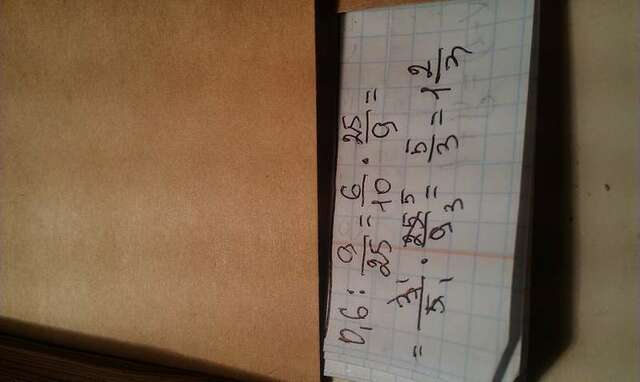 0,6 : 9/25 = 6/10 · 25/9 =
= 3¹/5¹ · 25⁵/9₃ = 5/3 = 1 2/3